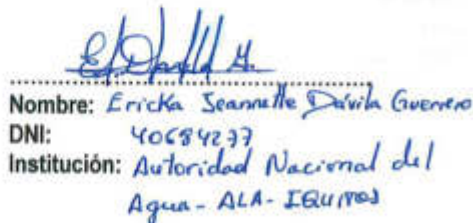 Nombre: Ericka Jeannette Dávila Guerrero
DNI: 40684277
Institución: Autoridad Nacional del
Agua - ALA - IQUITOS